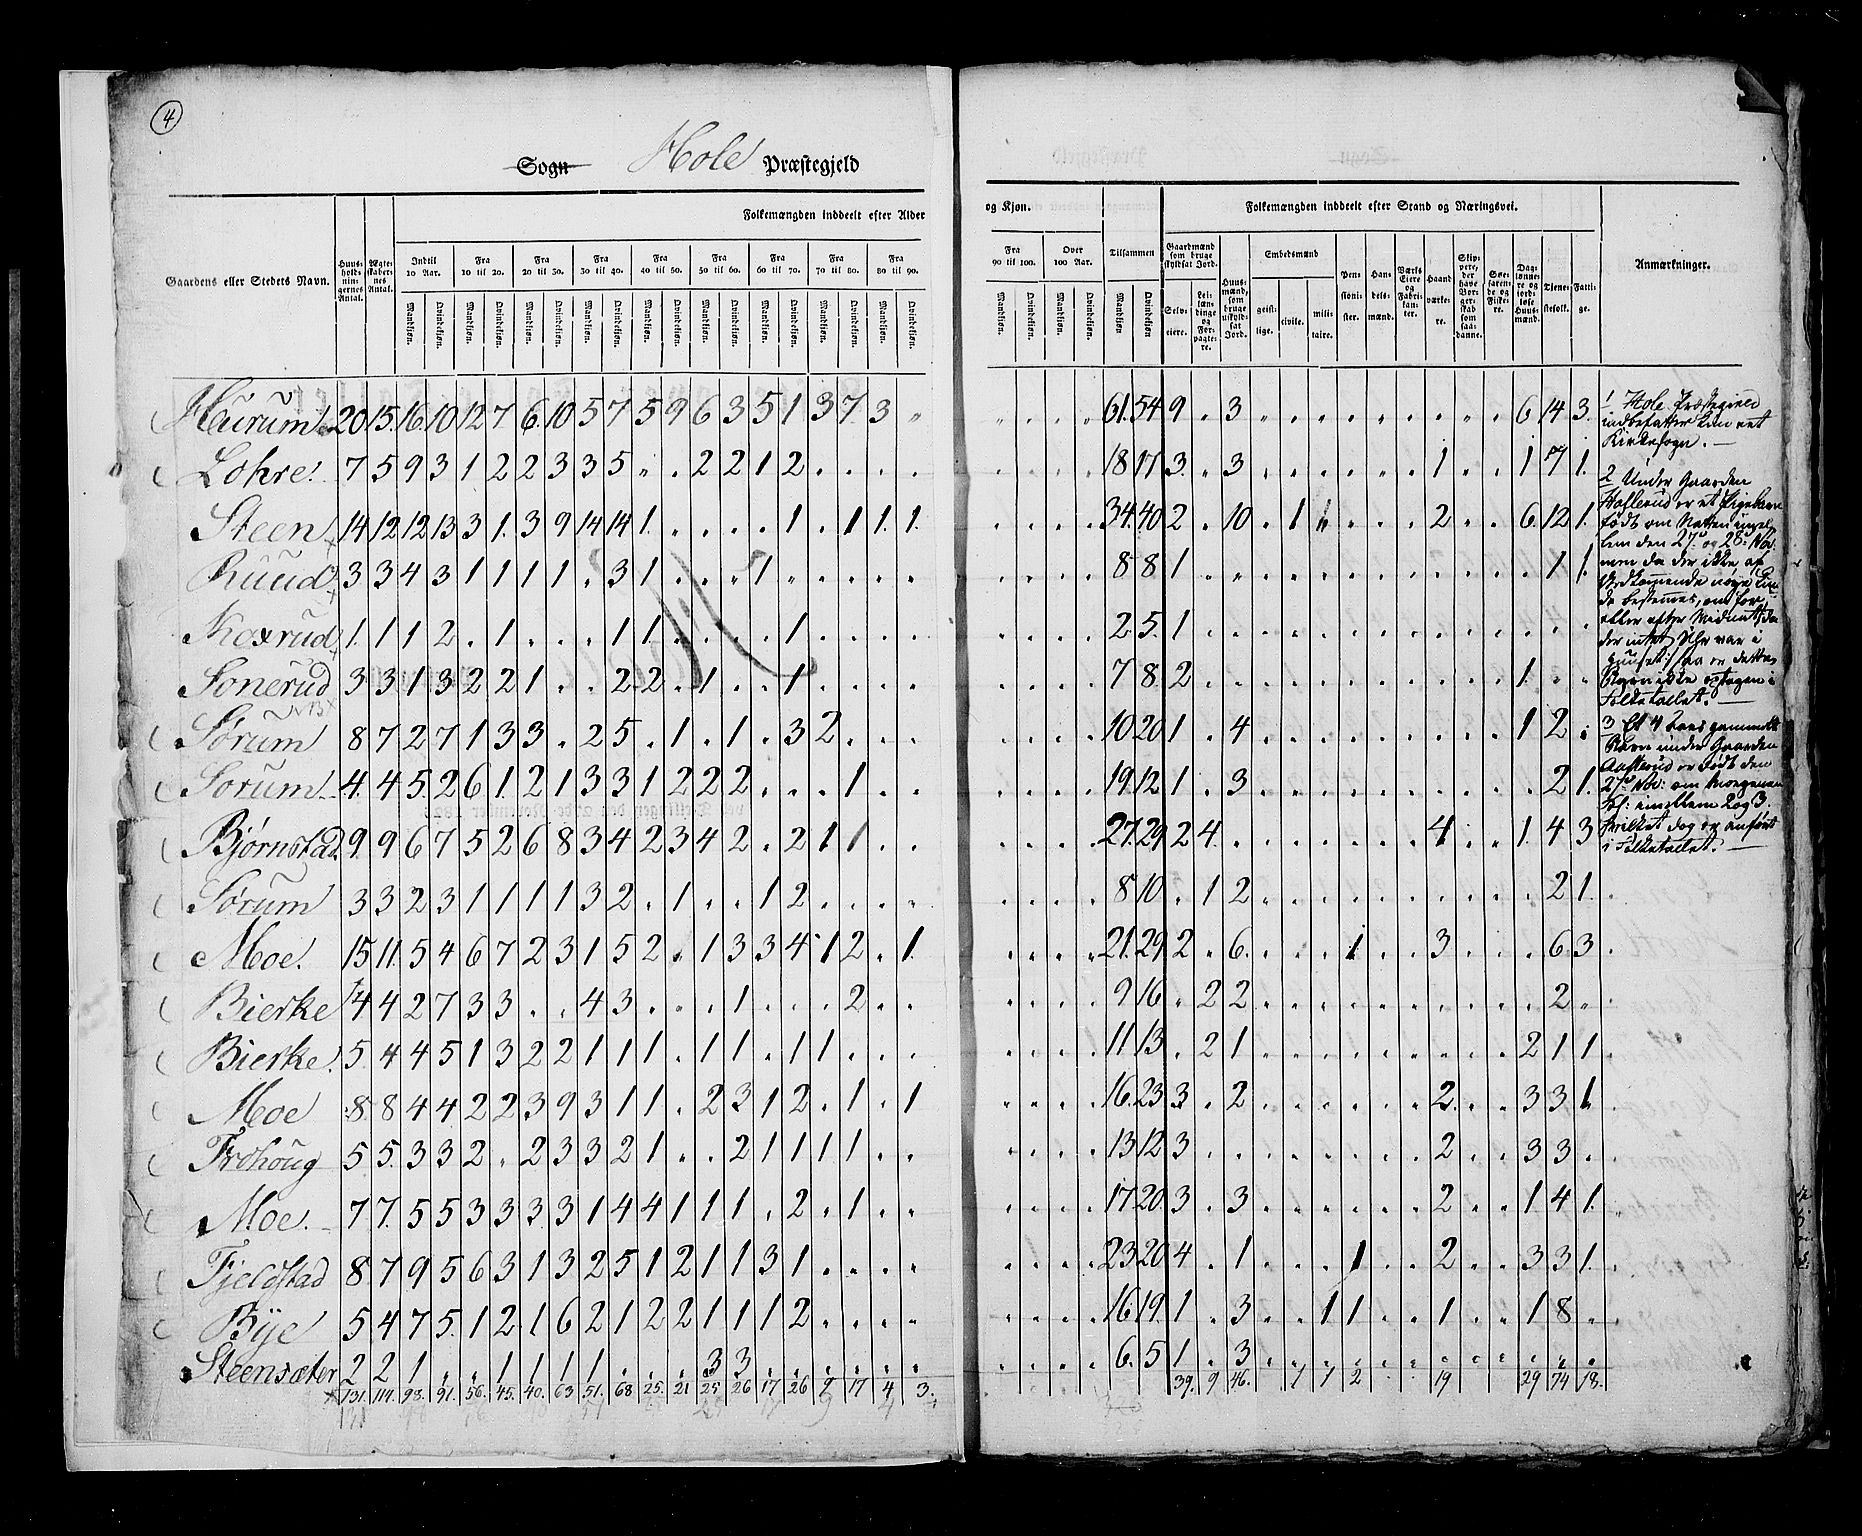 4
Sogn Hole Præstegjeld
Folkemængden inddeelt efter Alder og Kjøn. Folkemængden inddeelt efter Stand og Næringsvei.
Gaardens eller Stedets Navn. Huusholdningernes Antal. Ægteskabernes Antal. Indtil 10 Aar. Fra 10 til 20. Fra 20 til 30. Fra 30 til 40. Fra 40 til 50. Fra 50 til 60. Fra 60 til 70. Fra 70 til 80. Fra 80 til 90. Fra 90 til 100. Over 100 Aar. Tilsammen
Mandkiøn. Qvindekiøn.
Gaardmænd som bruge skyldsat Jord. Selveiere. Leilændinge og Forpagtere. Huusmænd, som bruge uskyldsat Jord. Embedsmænd geistlige. civile. militaire. Pensionister. Handelsmænd. Værks Eiere og Fabrikanter. Haandværkere. Skippere, der have Borgerskab som saadanne. Søefarende og Fiskere. Daglønnere og jordløse Huusmænd. Tjenestefolk. Fattige. Anmærkninger.
Hurum 20 15 16 10 12 7 6 10 5 7 5 9 6 3 5 1 3 7 3 61 54 9 3 6 14 3
Lohre 7 5 9 3 1 2 2 3 3 5 2 2 1 2 18 17 3 3 1 1 7 1
Steen 14 12 12 13 3 1 3 9 14 14 1 1 1 1 1 34 40 2 10 1 2 6 12 1
Ruud 3 3 4 3 1 1 1 1 3 1 1 8 8 1 1 1
Roxrud 1 1 1 2 1 1 1 1 2 5 1
Sonerud 3 3 1 3 2 2 1 2 2 1 1 7 8 2 1
NB
Sørum 8 7 2 7 1 3 3 2 5 1 1 3 2 10 20 1 4 1 2
Sorum 4 4 5 2 6 1 2 1 3 3 1 2 2 2 1 19 12 1 3 2 1
Bjørnstad 9 9 6 7 5 2 6 8 3 4 2 3 4 2 2 1 1 27 29 2 4 4 1 4 3
Sørum 3 3 2 3 1 1 1 1 3 2 1 1 2 8 10 1 2 2 1
Moe 15 11 5 4 6 7 2 3 1 5 2 1 3 3 4 1 2 1 21 29 2 6 1 3 6 3
Bierke 4 4 2 7 3 3 4 3 1 2 9 16 2 2 2
Bierke 5 4 4 5 1 3 2 2 1 1 1 1 1 1 1 1 11 13 2 1 2 1 1
Moe 8 8 4 4 2 2 3 9 3 1 1 2 3 1 2 1 1 16 23 3 2 2 3 3 1
Frohoug 5 5 3 3 2 2 3 3 2 1 2 1 1 1 1 13 12 3 2 3 3
Moe 7 7 5 5 3 3 3 3 1 4 4 1 1 1 2 1 17 20 3 3 2 1 4 1
Fjeldstad 8 7 9 5 6 3 1 3 2 5 1 2 1 1 3 1 23 20 4 1 1 2 3 3 1
Bye 5 4 7 5 1 2 1 6 2 1 2 2 1 1 1 2 16 19 1 3 1 1 1 1 8
Steensæter 2 2 1 1 1 1 1 1 3 3 6 5 1 3
131 114 98 91 56 45 40 63 51 68 25 21 25 26 17 26 9 17 4 3 39 9 46 1 1 2 19 29 74 18
1 Hole Præstegield
indbefatter kun eet
Kirkesogn.
2 Under Gaarden
er et Pigebarn
født om Natten imel-
lem den 27 og 28 Nov:
men da der ikke af
Vedkommende nøye kun-
de bestemmes, om før
eller efter Midnat
der intet Uhr var i
Huuset, saa er dette
Barn ikke optagen i
Folketallet.
3 Et gammelt
Barn under Gaarden
er født den
27 Nov: om Morgenen
Kl: imellem 2 og 3
hvilket dog er anført
i Folketallet.